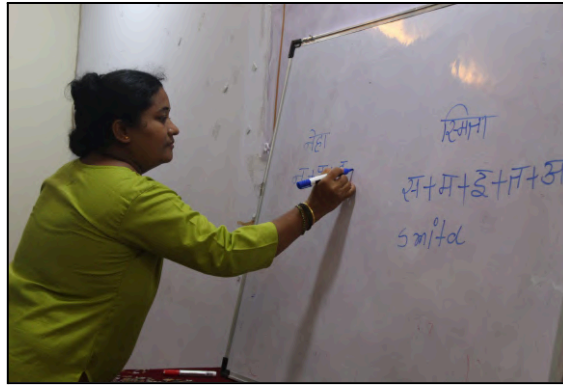 नेहा
स्मिता
स+म+इ+त+अ
smita